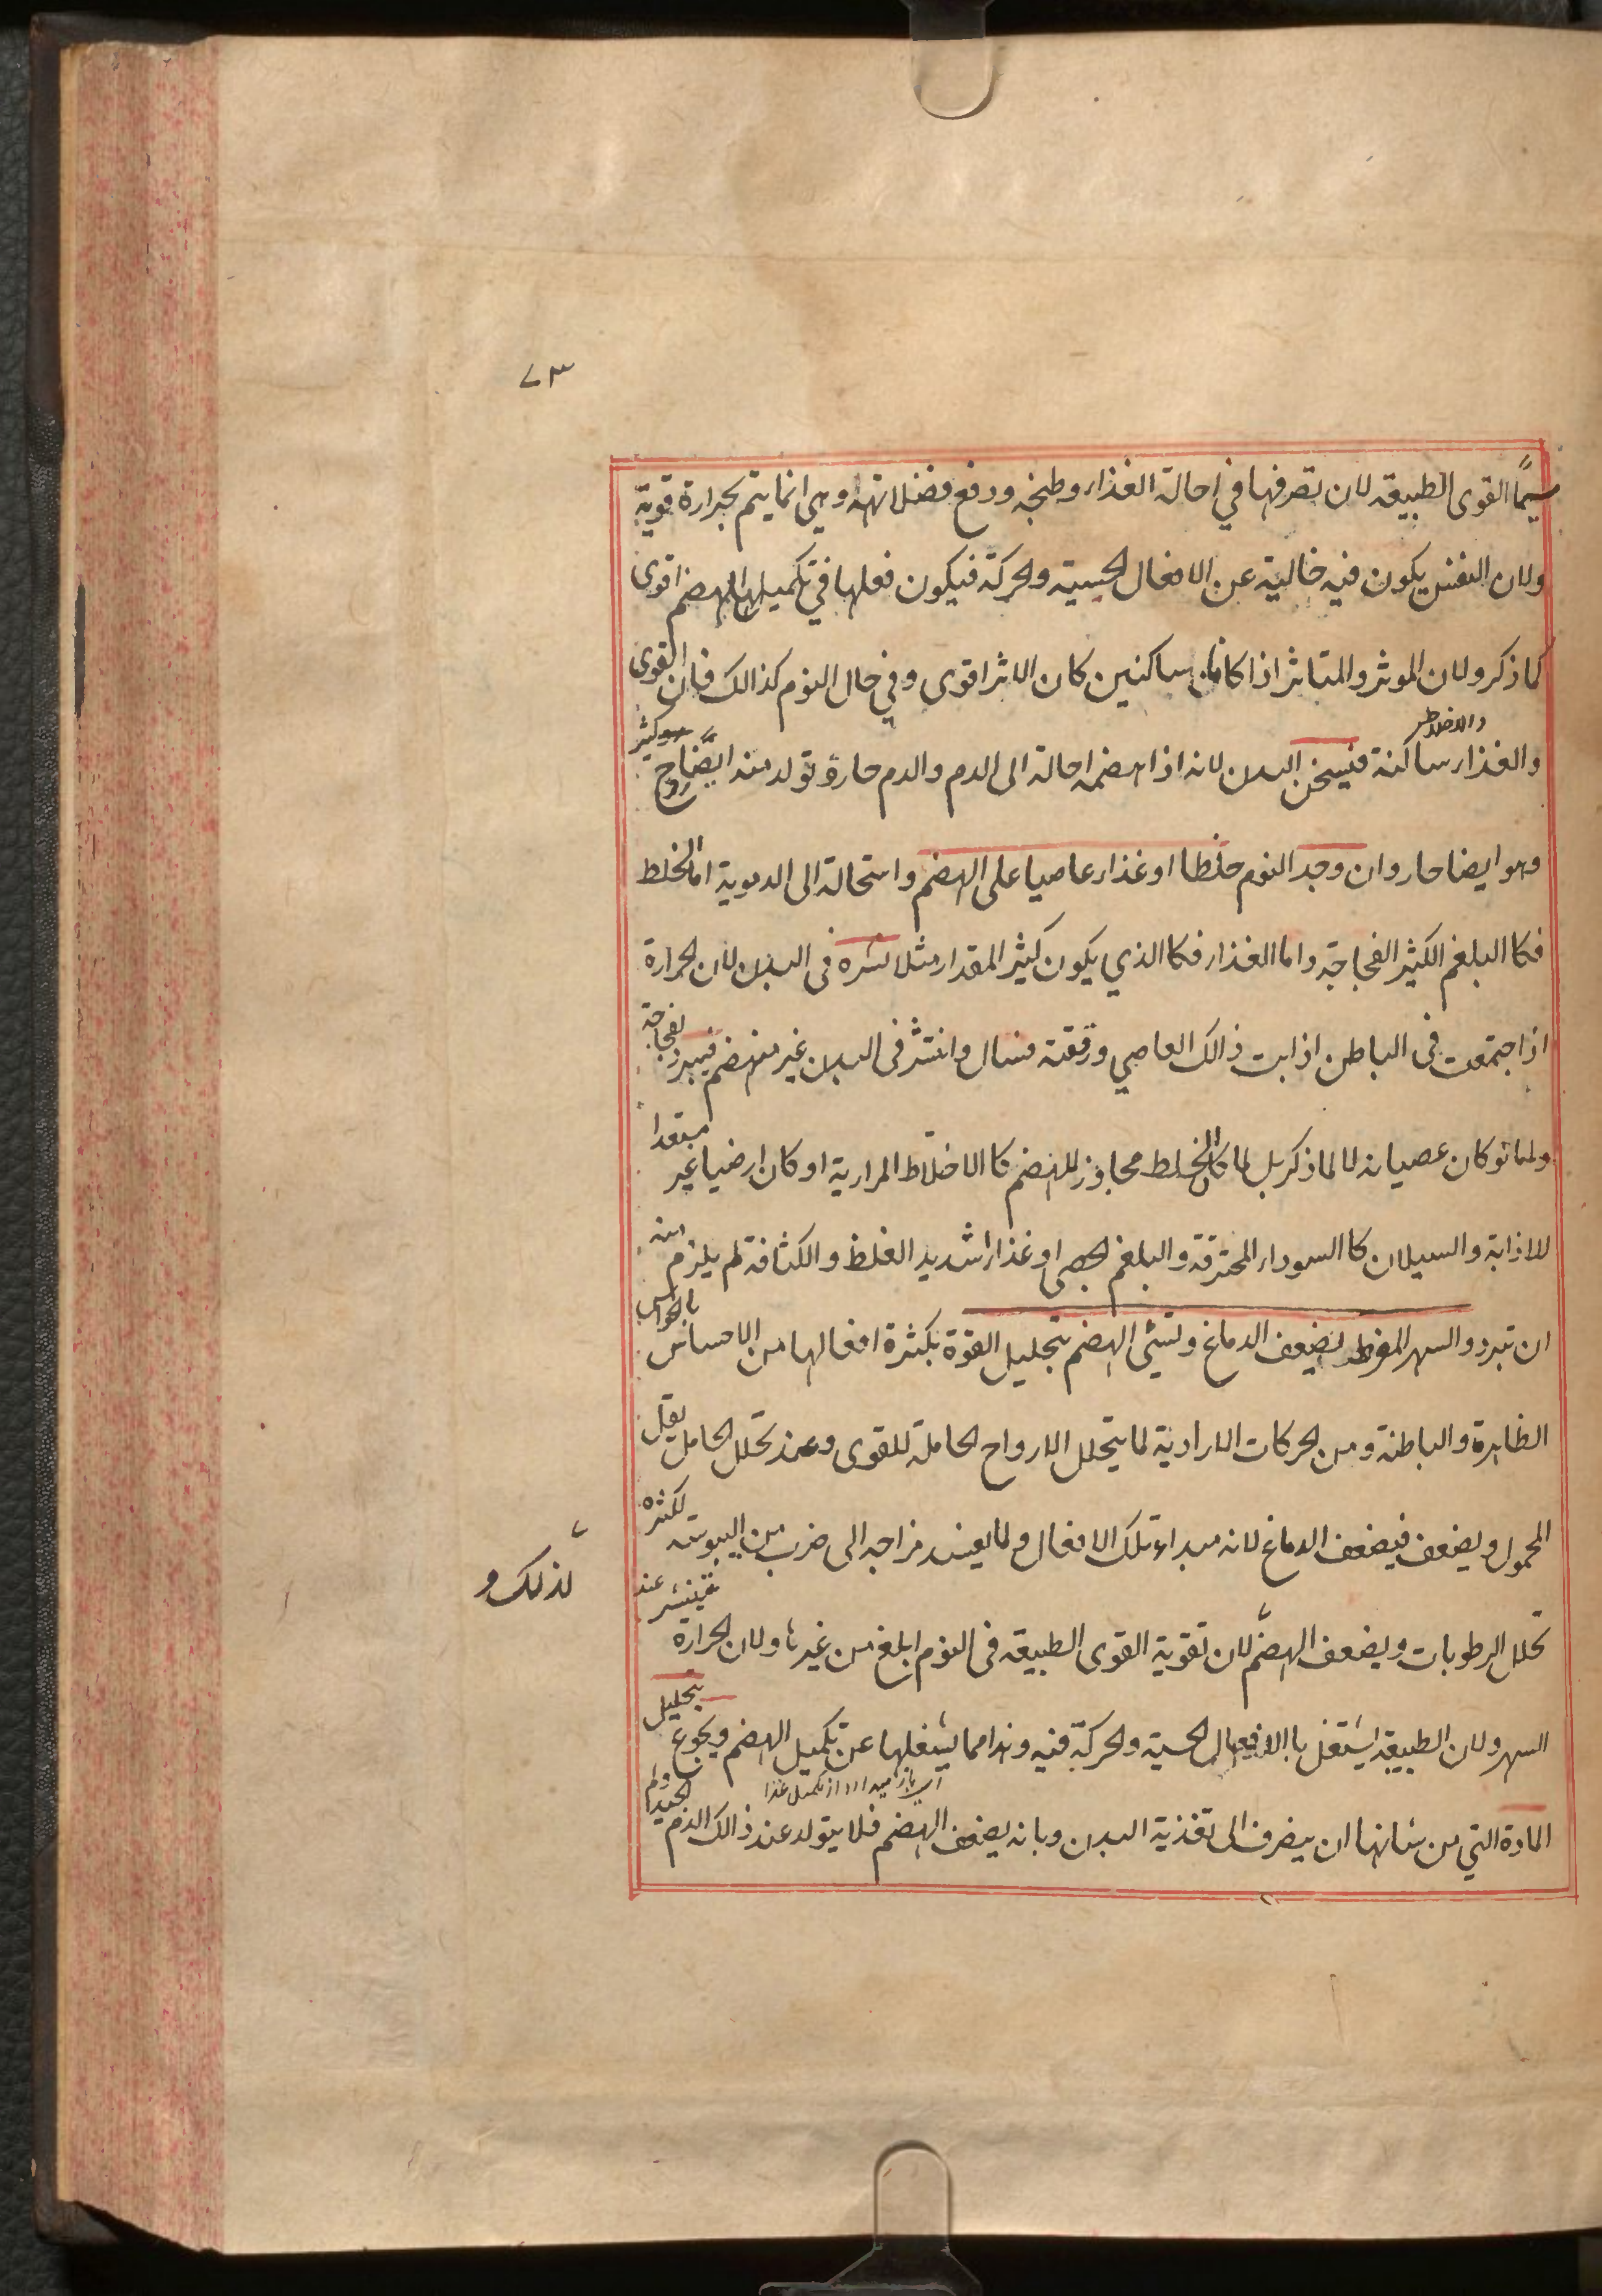 ٧٣
سيما القوى الطبيعة لان تصرفها في احالة الغذاء وطبخه ودفع فضلاته وهي انما يتم بحرارة قوية
ولان النفس يكون فيه خالية عن الافعال الحسية والحركة فيكون فعلها في تكميلها للهضم اقوى
كما ذكر ولان الموثر والمتاثر اذا كانا ساكنين كان الاثر اقوى وفي حال النوم كذالك فان القوى
والاخلاط
والغذاء ساكنة فيسخن البدن لانه اذا هضمه احالة الى الدم والدم حار وتولد منه ايضا روح كثير
وهو ايضا حار وان وجد النوم خلطا او غذاء عاصيا على الهضم واستحالة الى الدموية اما الخلط
فكا البلغم الكثير الفجاجة واما الغذاء فكا الذي يكون كثير المقدار مثلا نشره في البدن لان الحرارة
اذا اجتمعت في الباطن اذابت ذالك العاصي ورققته فسال وانتشر في البدن غير منهضم فيبرز لفجاجة
ولما لو كان عصيانه لا لما ذكر بل لما كان الخلط مجاوز للهضم كا الاخلاط المرارية او كان ارضيا غير مستعدا
للاذابة والسيلان كا السوداء المحترقة والبلغم الجصى او غذاء شديد الغلظ والكثافة لم يلزم منه
ان تبرد والسهر المفرط يضعف الدماغ وتسئى الهضم بتحليل القوة بكثرة افعالها من الاحساس بالحواس
الظاهرة والباطنة ومن الحركات الارادية لما يتحلل الارواح الحاملة للقوى وعند تحلل الحامل يقل
المحمول ويضعف فيضعف الدماغ لانه مبداء تلك الافعال ولما يفسد مزاجه الى ضرب من اليبوسة لكثرة
لذلك و
تحلل الرطوبات ويضعف الهضم لان تقوية القوى الطبيعة في النوم ابلغ من غيرها ولان الحرارة تنتشر عند
السهر ولان الطبيعة اشتغل با الافعال الحسية والحركة فيه وهذا مما يشغلها عن تكميل الهضم ويجوع بتحليل
المادة التي من شانها ان يصرف الى تغذية البدن وبانه يضعف الهضم فلا يتولد عند ذالك الدم الجيد ولم